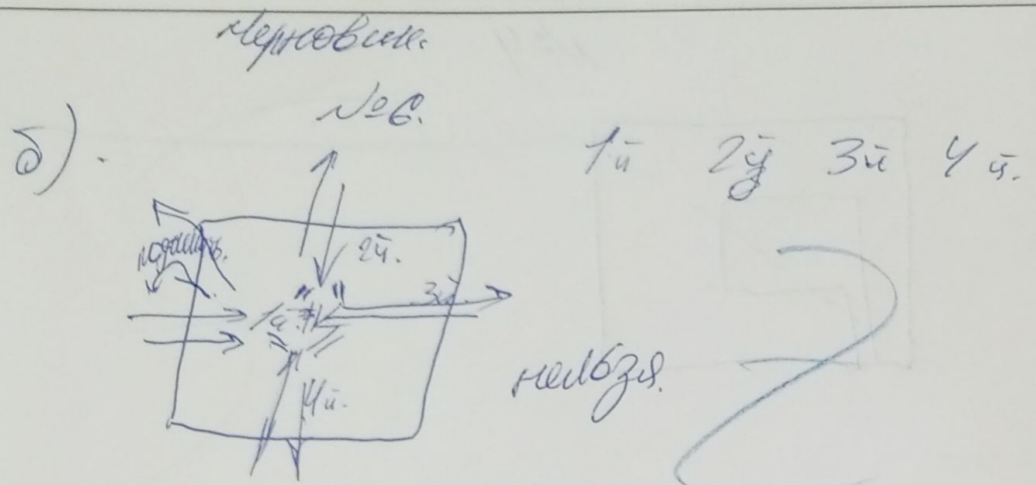 Черновик.
№6.
б).
1й 2й 3й 4й.
2й.
3й
4й.
нельзя.